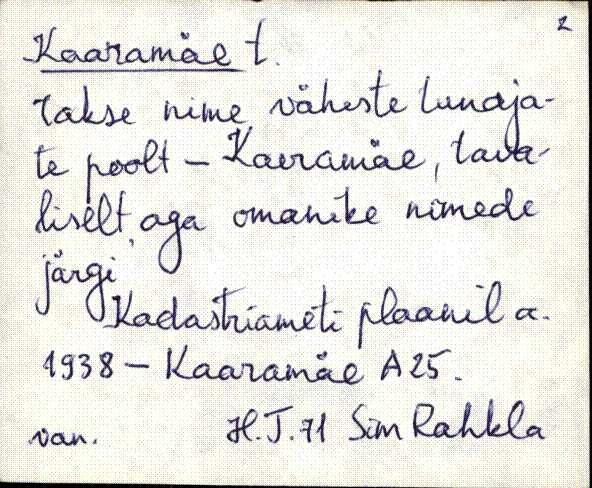 2
Kaaramäe t.
takse nime väheste tundja-
te poolt - Kaeramäe, tava-
liselt aga omanike nimede
järgi
Kadastriameti plaanil a.
1938 - Kaaramäe A 25.
van. H.J.71 Sim Rahkla